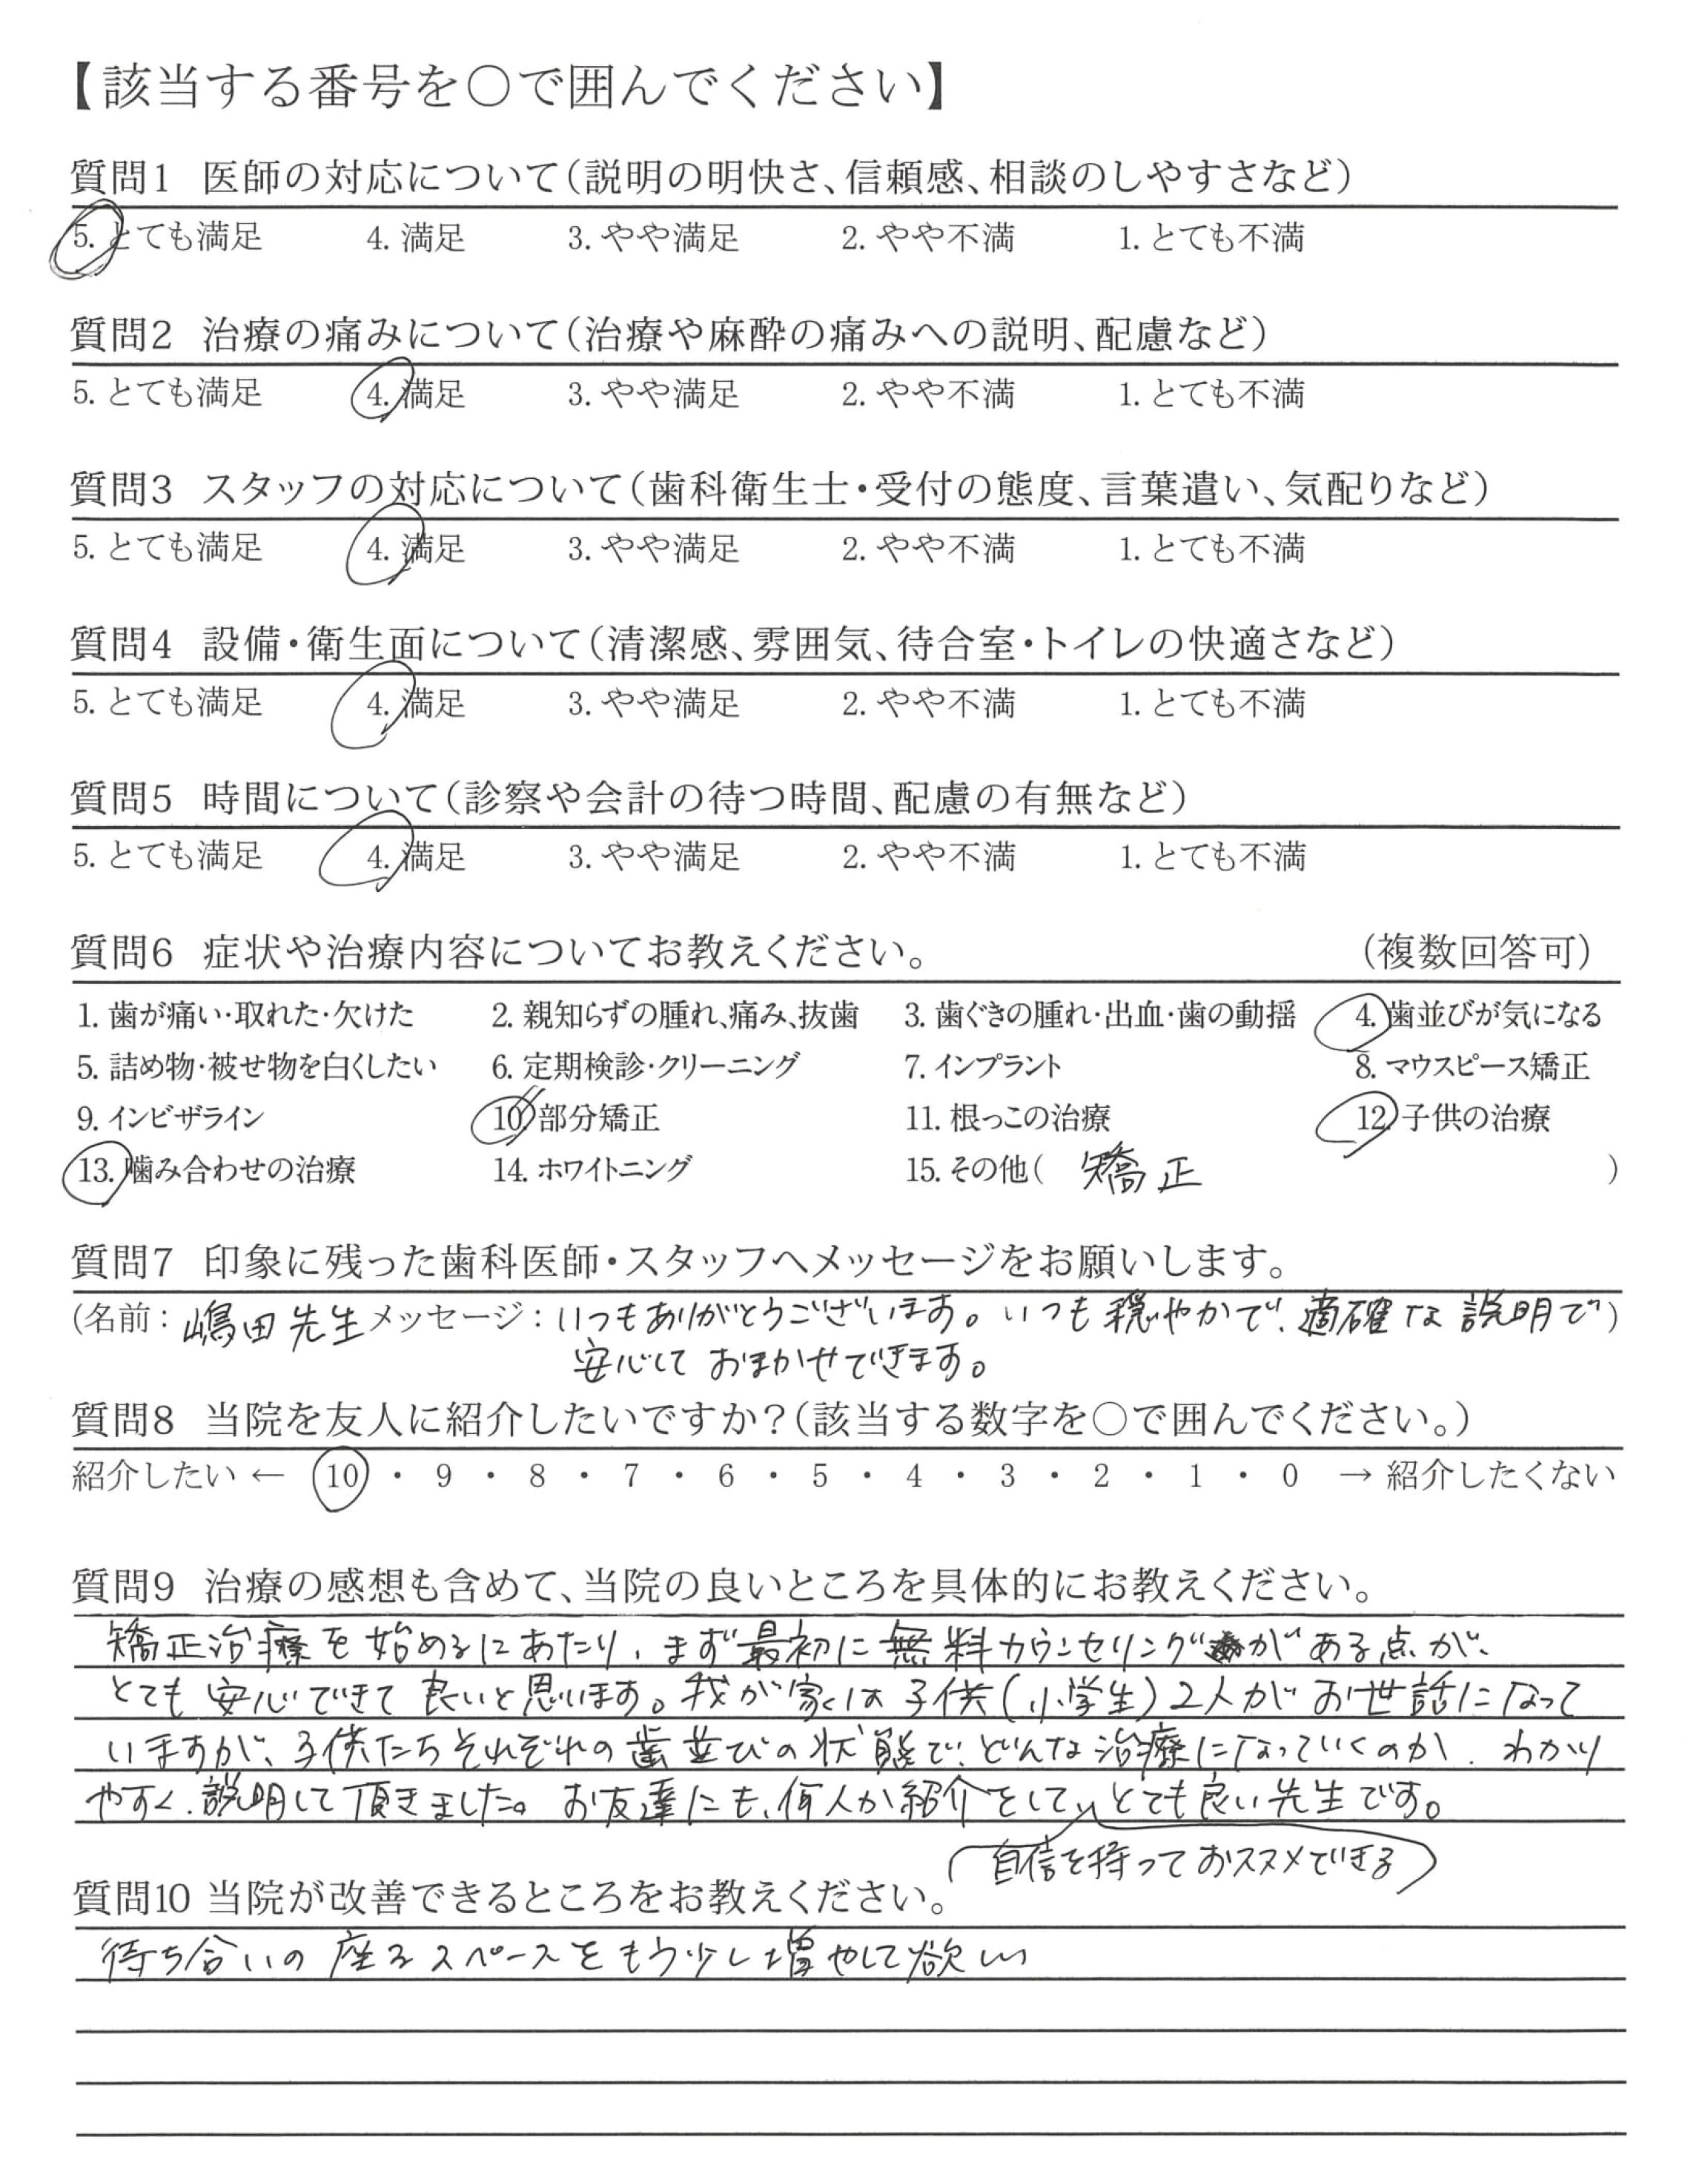 【該当する番号を○で囲んでください】
質問1 医師の対応について（説明の明快さ、信頼感、相談のしやすさなど）
5. とても満足 4. 満足 3. やや満足 2. やや不満 1. とても不満
質問2 治療の痛みについて（治療や麻酔の痛みへの説明、配慮など）
5. とても満足 4. 満足 3. やや満足 2. やや不満 1. とても不満
質問3 スタッフの対応について（歯科衛生士・受付の態度、言葉遣い、気配りなど）
5. とても満足 4. 満足 3. やや満足 2. やや不満 1. とても不満
質問4 設備・衛生面について（清潔感、雰囲気、待合室・トイレの快適さなど）
5. とても満足 4. 満足 3. やや満足 2. やや不満 1. とても不満
質問5 時間について（診察や会計の待つ時間、配慮の有無など）
5. とても満足 4. 満足 3. やや満足 2. やや不満 1. とても不満
質問6 症状や治療内容についてお教えください。 （複数回答可）
1. 歯が痛い・取れた・欠けた 2. 親知らずの腫れ、痛み、抜歯 3. 歯ぐきの腫れ・出血・歯の動揺 4. 歯並びが気になる
5. 詰め物・被せ物を白くしたい 6. 定期検診・クリーニング 7. インプラント 8. マウスピース矯正
9. インビザライン 10. 部分矯正 11. 根っこの治療 12. 子供の治療
13. 噛み合わせの治療 14. ホワイトニング 15. その他（ 矯正 ）
質問7 印象に残った歯科医師・スタッフへメッセージをお願いします。
(名前： 嶋田先生 メッセージ：いつもありがとうございます。いつも穏やかで、適確な説明で）
安心しておまかせできます。
質問8 当院を友人に紹介したいですか？（該当する数字を○で囲んでください。）
紹介したい ← 10 ・ 9 ・ 8 ・ 7 ・ 6 ・ 5 ・ 4 ・ 3 ・ 2 ・ 1 ・ 0 → 紹介したくない
質問9 治療の感想も含めて、当院の良いところを具体的にお教えください。
矯正治療を始めるにあたり、まず最初に無料カウンセリングがある点が、
とても安心できて良いと思います。我が家は子供（小学生）2人がお世話になって
いますが、子供たちそれぞれの歯並びの状態で、どんな治療になっていくのか、わかり
やすく、説明して頂きました。お友達にも、何人か紹介をしていとても良い先生です。
自信を持っておススメできる
質問10 当院が改善できるところをお教えください。
待ち合いの座るスペースをもう少し増やして欲しい